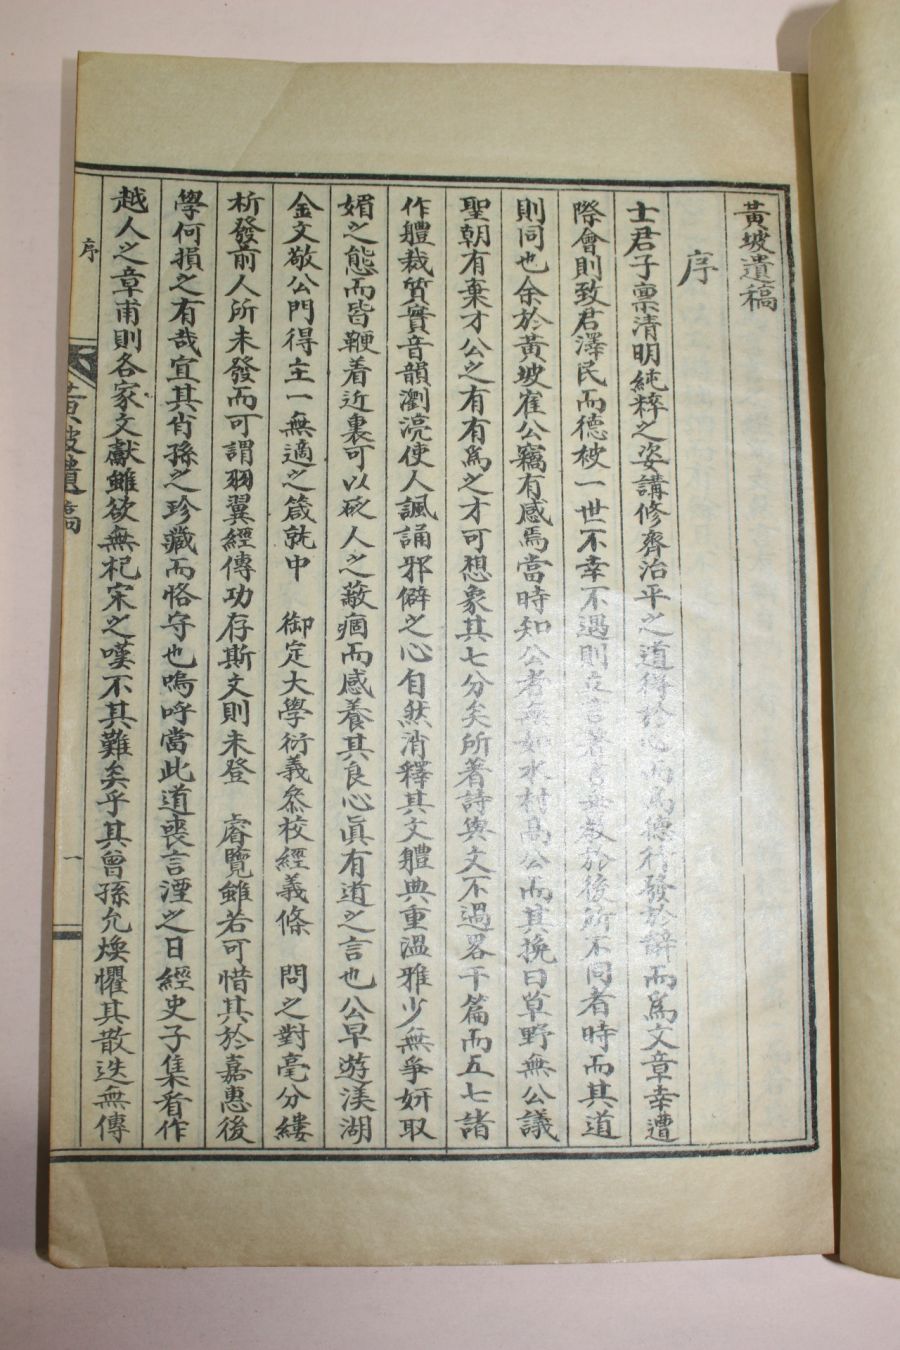 黃坡遺稿
序
士君子稟清明純粹之姿講修齊治平之道得於心而爲德行發於辭而爲文章幸遭
際會則致君澤民而德被一世不幸不遇則立言著書垂敎於後所不同者時而其道
則同也余於黃坡崔公竊有感焉當時知公者無如水村高公而其挽曰草野無公議
聖朝有棄才公之有有爲之才可想象其七分矣所著詩與文不過畧干篇而五七諸
作軆裁質實音韻瀏湸使人諷誦邪僻之心自然消釋其文軆典重溫雅少無爭姸取
媚之態而皆鞭着近裏可以砭人之蔽痼而感養其良心眞有道之言也公早遊渼湖
金文敬公門得主一無適之箴就中 御定大學衍義叅校經義條 問之對毫分縷
析發前人所未發而可謂羽翼經傳功存斯文則未登 睿覽雖若可惜其於嘉惠後
學何損之有哉宜其肖孫之珍藏而恪守也嗚呼當此道喪言湮之日經史子集看作
越人之章甫則各家文獻雖欲無杞宋之嘆不其難矣乎其曾孫允煥懼其散迭無傳
序
黃坡遺稿
一